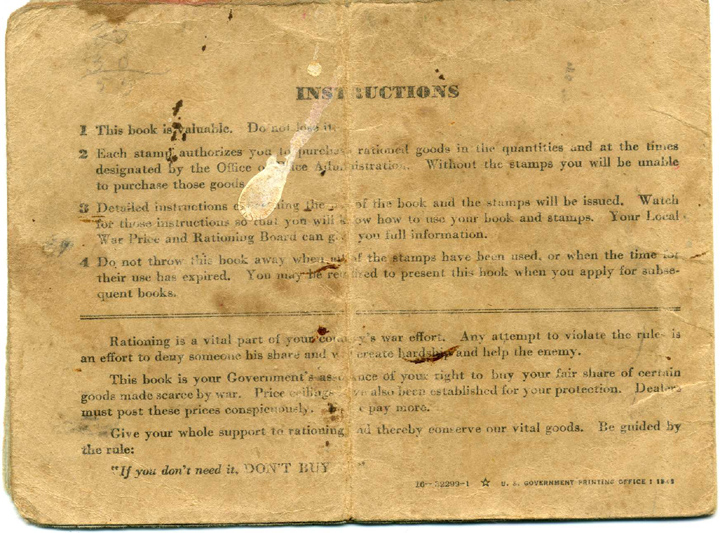 INSTRUCTIONS
1 This book is valuable. Do not lose it.
2 Each stamp authorizes you to purchase rationed goods in the quantities and at the times
designated by the Office of Price Administration. Without the stamps you will be unable
to purchase those goods
3 Detailed instructions concerning the of the book and the stamps will be issued. Watch
for those instructions so that you will know how to use your book and stamps. Your Local
War Price and Rationing Board can give you full information.
4 Do not throw this book away when all of the stamps have been used, or when the time for
their use has expired. You may be required to present this book when you apply for subse-
quent books.
Rationing is a vital part of your country's war effort. Any attempt to violate the rules is
an effort to deny someone his share and will create hardship and help the enemy.
This book is your Government's assurance of your right to buy your fair share of certain
goods made scarce by war. Price ceilings have also been established for your protection. Dealers
must post these prices conspicuously. pay more.
Give your whole support to rationing and thereby conserve our vital goods. Be guided by
the rule:
"If you don't need it, DON'T BUY "
16—32299-1 ☆ U. S. GOVERNMENT PRINTING OFFICE